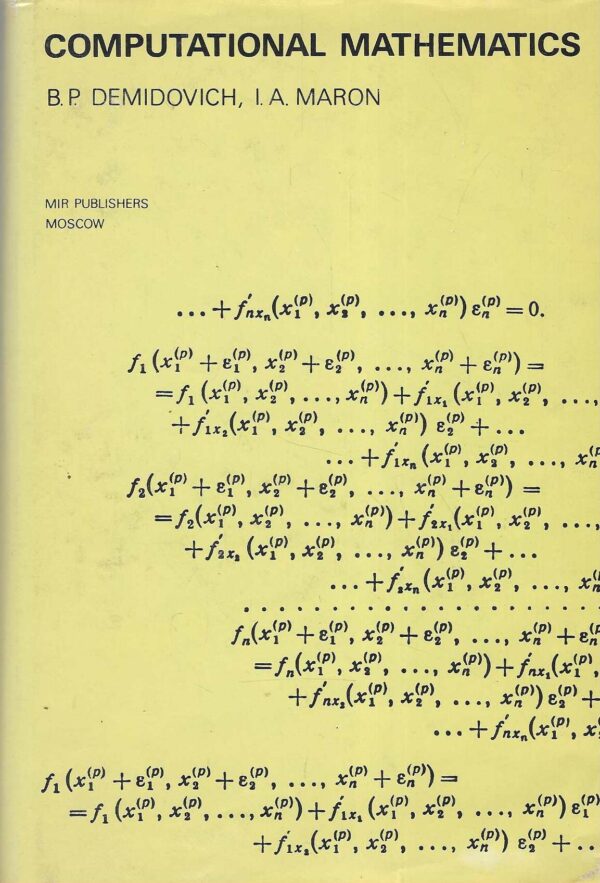 COMPUTATIONAL MATHEMATICS
B.P. DEMIDOVICH, I.A. MARON
MIR PUBLISHERS
MOSCOW
... + f′ₙₓₙ(x₁⁽ᵖ⁾, x₂⁽ᵖ⁾, ..., xₙ⁽ᵖ⁾) εₙ⁽ᵖ⁾ = 0.
f₁(x₁⁽ᵖ⁾ + ε₁⁽ᵖ⁾, x₂⁽ᵖ⁾ + ε₂⁽ᵖ⁾, ..., xₙ⁽ᵖ⁾ + εₙ⁽ᵖ⁾) =
= f₁(x₁⁽ᵖ⁾, x₂⁽ᵖ⁾, ..., xₙ⁽ᵖ⁾) + f′₁ₓ₁(x₁⁽ᵖ⁾, x₂⁽ᵖ⁾, ...,
+ f′₁ₓ₂(x₁⁽ᵖ⁾, x₂⁽ᵖ⁾, ..., xₙ⁽ᵖ⁾) ε₂⁽ᵖ⁾ + ...
... + f′₁ₓₙ(x₁⁽ᵖ⁾, x₂⁽ᵖ⁾, ..., xₙ⁽ᵖ
f₂(x₁⁽ᵖ⁾ + ε₁⁽ᵖ⁾, x₂⁽ᵖ⁾ + ε₂⁽ᵖ⁾, ..., xₙ⁽ᵖ⁾ + εₙ⁽ᵖ⁾) =
= f₂(x₁⁽ᵖ⁾, x₂⁽ᵖ⁾, ..., xₙ⁽ᵖ⁾) + f′₂ₓ₁(x₁⁽ᵖ⁾, x₂⁽ᵖ⁾, ...,
+ f′₂ₓ₂(x₁⁽ᵖ⁾, x₂⁽ᵖ⁾, ..., xₙ⁽ᵖ⁾) ε₂⁽ᵖ⁾ + ...
... + f′₂ₓₙ(x₁⁽ᵖ⁾, x₂⁽ᵖ⁾, ..., xₙ⁽ᵖ
. . . . . . . . . . . . . . . . . . . . . . . . . .
fₙ(x₁⁽ᵖ⁾ + ε₁⁽ᵖ⁾, x₂⁽ᵖ⁾ + ε₂⁽ᵖ⁾, ..., xₙ⁽ᵖ⁾ + εₙ⁽ᵖ
= fₙ(x₁⁽ᵖ⁾, x₂⁽ᵖ⁾, ..., xₙ⁽ᵖ⁾) + f′ₙₓ₁(x₁⁽ᵖ⁾,
+ f′ₙₓ₂(x₁⁽ᵖ⁾, x₂⁽ᵖ⁾, ..., xₙ⁽ᵖ⁾) ε₂⁽ᵖ⁾ +
... + f′ₙₓₙ(x₁⁽ᵖ⁾, x₂
f₁(x₁⁽ᵖ⁾ + ε₁⁽ᵖ⁾, x₂⁽ᵖ⁾ + ε₂⁽ᵖ⁾, ..., xₙ⁽ᵖ⁾ + εₙ⁽ᵖ⁾) =
= f₁(x₁⁽ᵖ⁾, x₂⁽ᵖ⁾, ..., xₙ⁽ᵖ⁾) + f′₁ₓ₁(x₁⁽ᵖ⁾, x₂⁽ᵖ⁾, ..., xₙ⁽ᵖ⁾) ε₁⁽ᵖ⁾
+ f′₁ₓ₂(x₁⁽ᵖ⁾, x₂⁽ᵖ⁾, ..., xₙ⁽ᵖ⁾) ε₂⁽ᵖ⁾ + ..